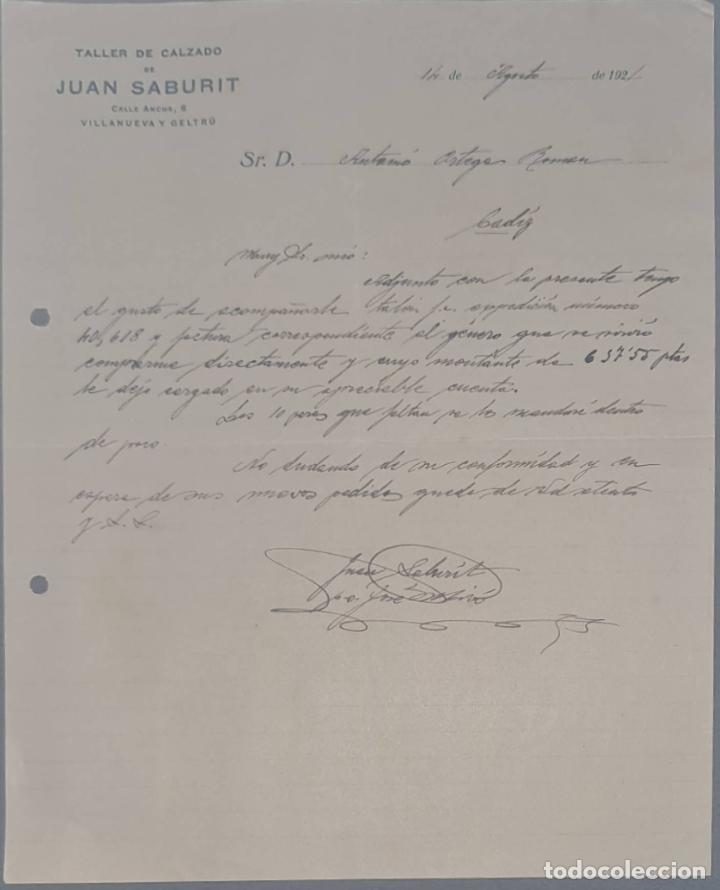 TALLER DE CALZADO
DE
JUAN SABURIT
CALLE ANCHA, 8
VILLANUEVA Y GELTRÚ
14 de Agosto de 1921
Sr. D. Antonio Ortega Roman
Cadiz
Muy Sr. mio:
Adjunto con la presente tengo
el gusto de acompañarle talón f.c. expedición número
40,618 y factura correspondiente al género que se sirvió
comprarme directamente y cuyo montante de 637'55 ptas
le dejo cargado en su apreciable cuenta.
Los 10 pares que faltan se los mandaré dentro
de poco.
No dudando de su conformidad y en
espera de sus nuevos pedidos queda de Vd atento
y S. S.
Juan Saburit
p.o. José
todocoleccion